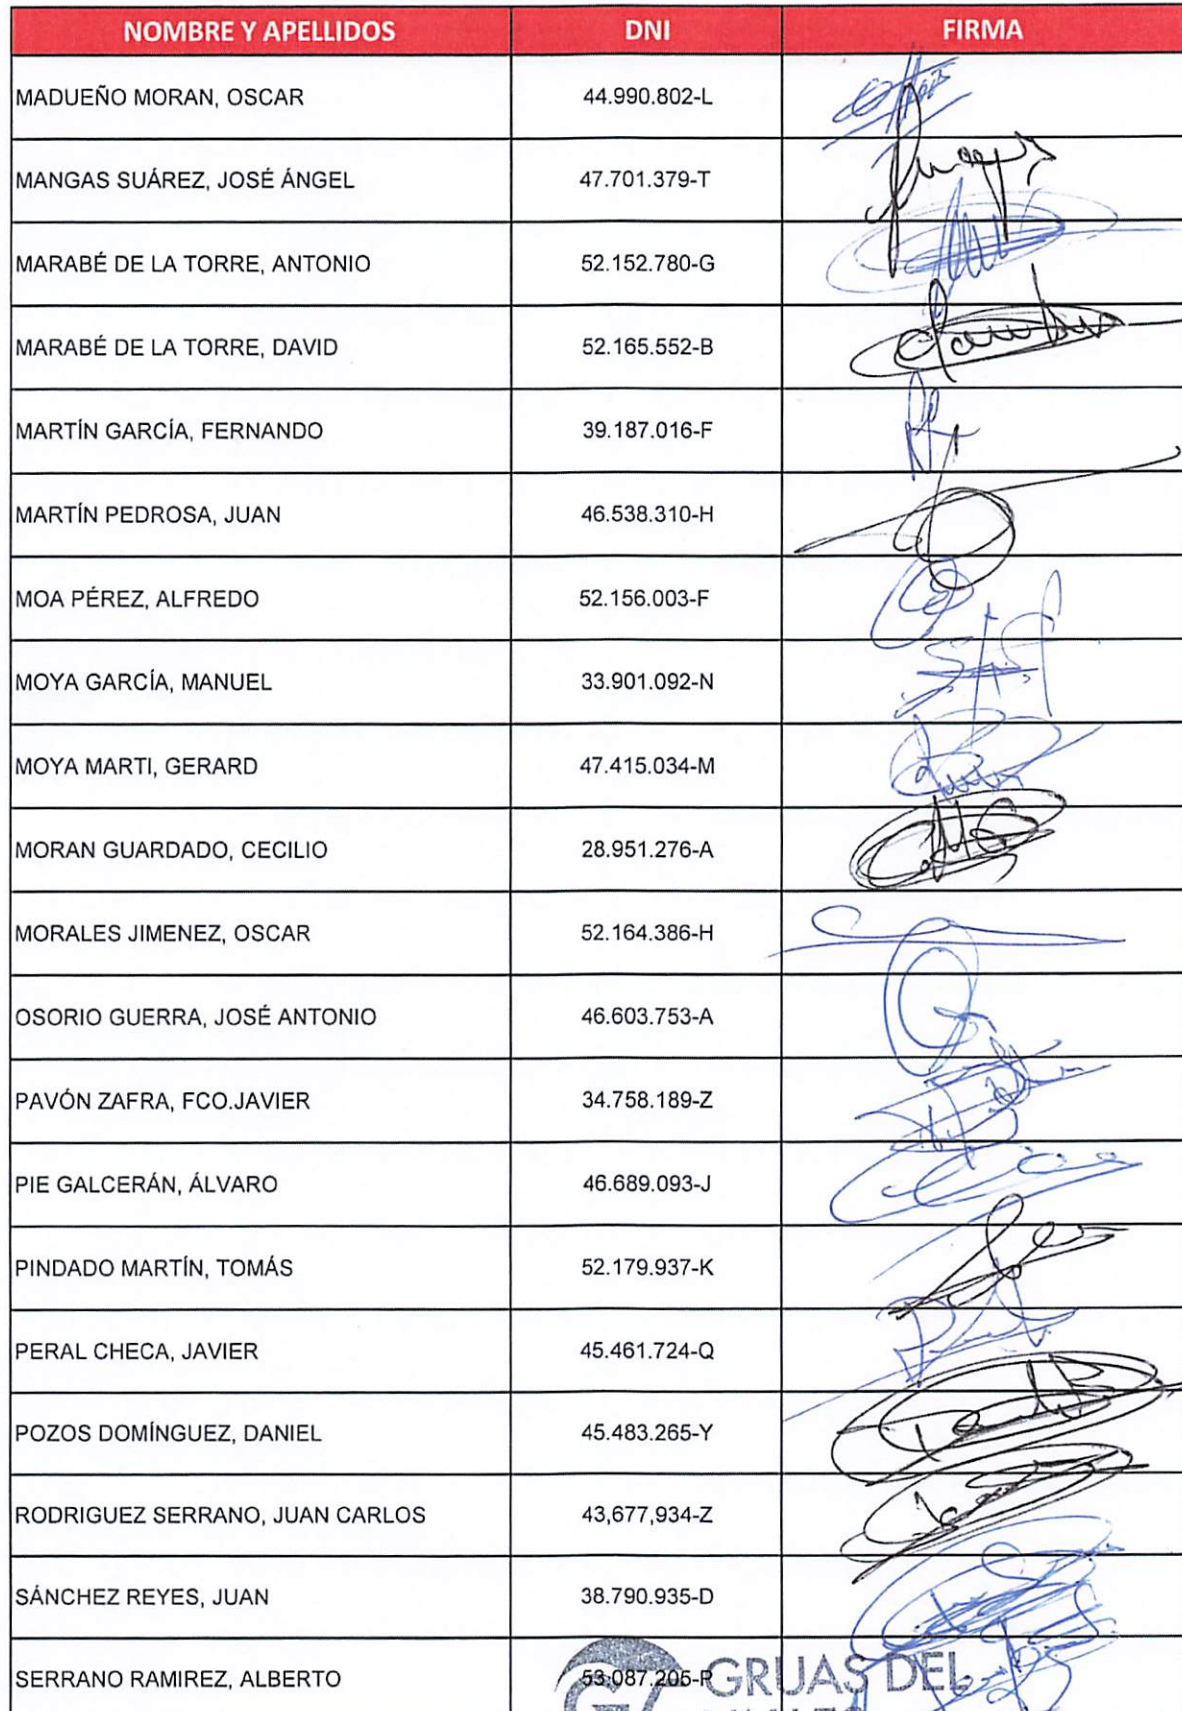 NOMBRE Y APELLIDOS DNI FIRMA
MADUEÑO MORAN, OSCAR 44.990.802-L
MANGAS SUÁREZ, JOSÉ ÁNGEL 47.701.379-T
MARABÉ DE LA TORRE, ANTONIO 52.152.780-G
MARABÉ DE LA TORRE, DAVID 52.165.552-B
MARTÍN GARCÍA, FERNANDO 39.187.016-F
MARTÍN PEDROSA, JUAN 46.538.310-H
MOA PÉREZ, ALFREDO 52.156.003-F
MOYA GARCÍA, MANUEL 33.901.092-N
MOYA MARTI, GERARD 47.415.034-M
MORAN GUARDADO, CECILIO 28.951.276-A
MORALES JIMENEZ, OSCAR 52.164.386-H
OSORIO GUERRA, JOSÉ ANTONIO 46.603.753-A
PAVÓN ZAFRA, FCO.JAVIER 34.758.189-Z
PIE GALCERÁN, ÁLVARO 46.689.093-J
PINDADO MARTÍN, TOMÁS 52.179.937-K
PERAL CHECA, JAVIER 45.461.724-Q
POZOS DOMÍNGUEZ, DANIEL 45.483.265-Y
RODRIGUEZ SERRANO, JUAN CARLOS 43,677,934-Z
SÁNCHEZ REYES, JUAN 38.790.935-D
SERRANO RAMIREZ, ALBERTO 53.087.205-P
GRUAS DEL